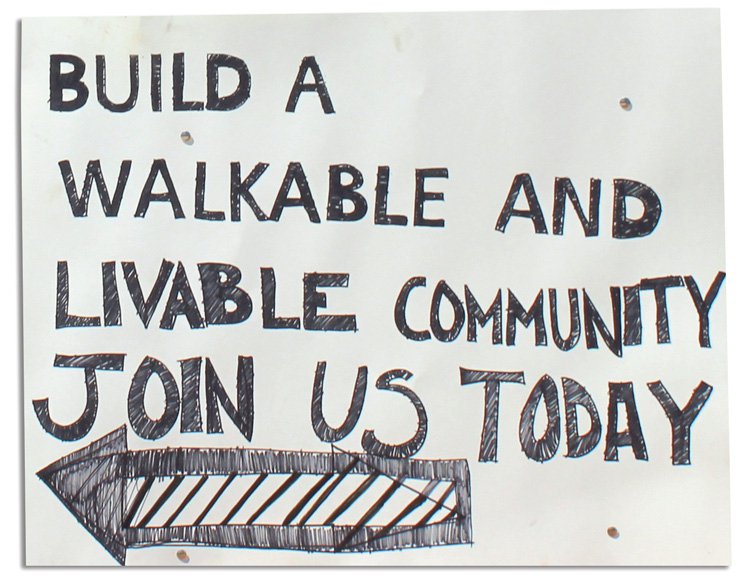 BUILD A
WALKABLE AND
LIVABLE COMMUNITY
JOIN US TODAY